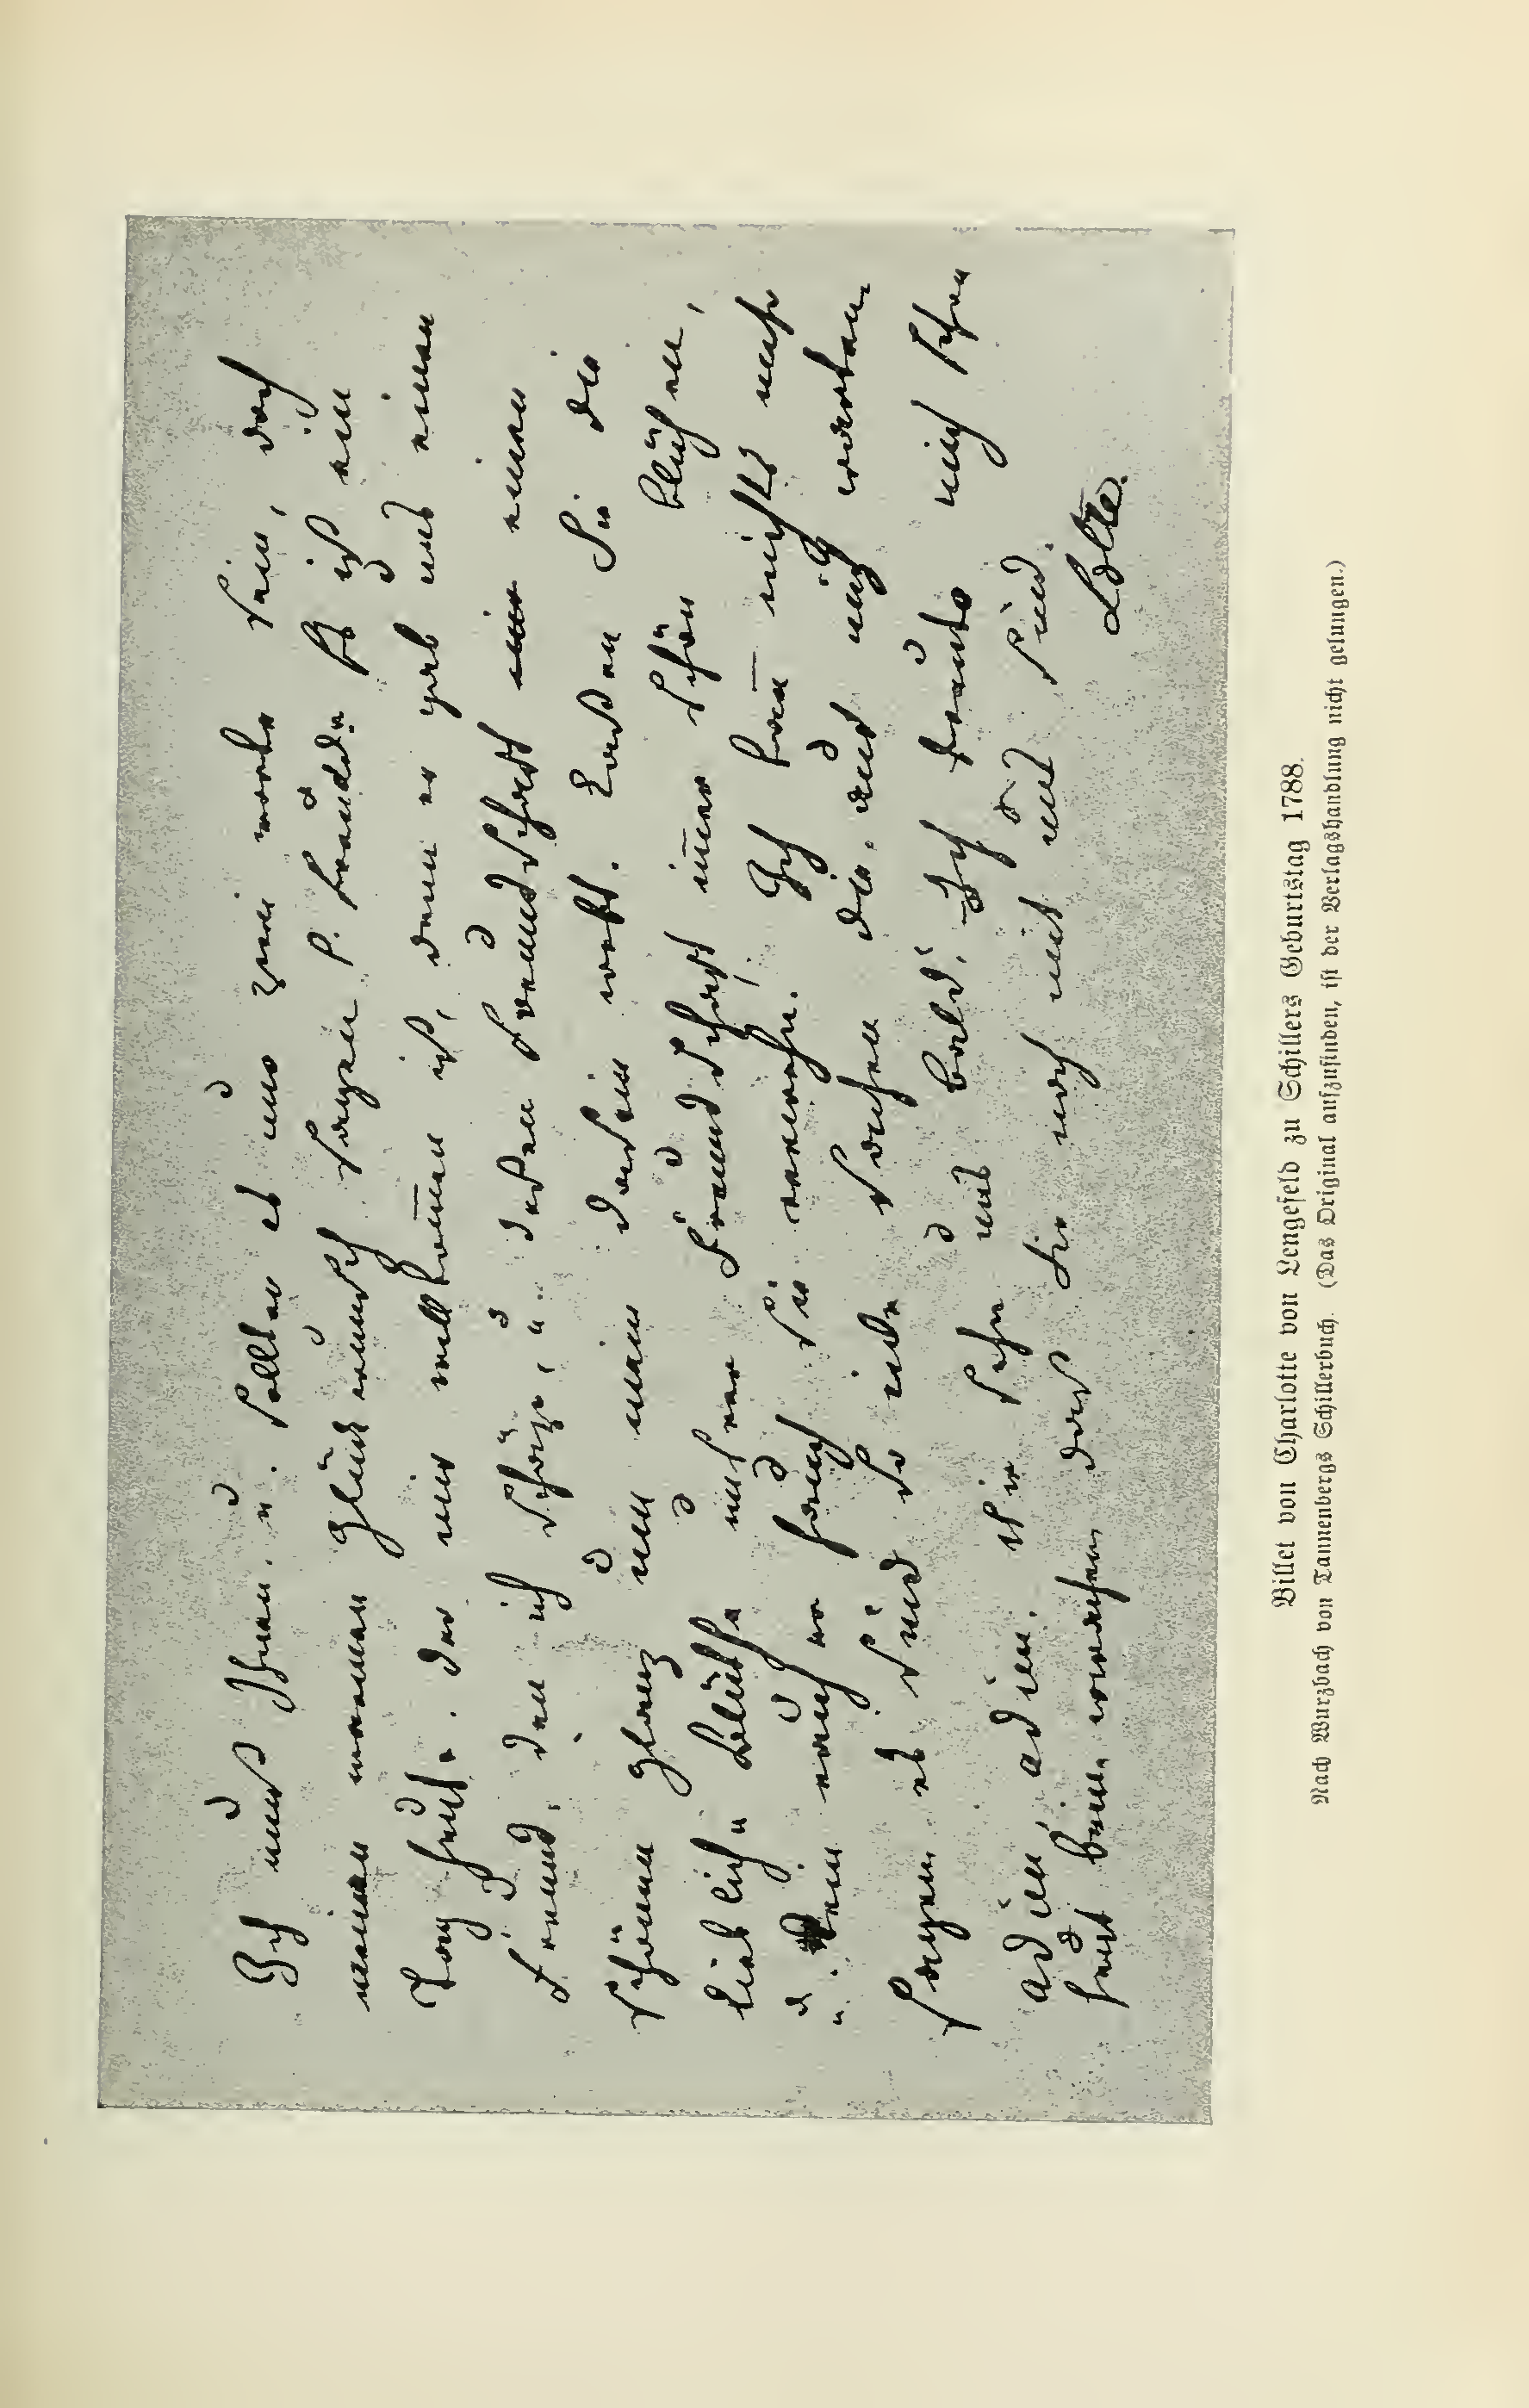 Ich muß Ihnen. u. sollten es nur zwei worte sein, doch
meinen warmen Glückwunsch sagen. s. freudi Es ist ein
Tag heute. der mir willkommen ist, denn er gab uns einen
Freund, den ich schäze, u. deßen Freundschaft mir einen
schönen glanz um mein dasein webt. Laßen Sie die
liebliche Blüthe unsrer Freundschaft immer schön blühen,
u. kein rauher hauch sie verwehn. Ich kan nichts mehr
sagen. es sind so viele sachen die. auf mich warten.
adieu, adieu. bis sehn wir bald. Ich freute mich schon
heut beim erwachen daß Sie noch mit uns sind.
Lotte.
Billet von Charlotte von Lengefeld zu Schillers Geburtstag 1788.
Nach Wurzbach von Tannenbergs Schillerbuch. (Das Original aufzufinden, ist der Verlagshandlung nicht gelungen.)